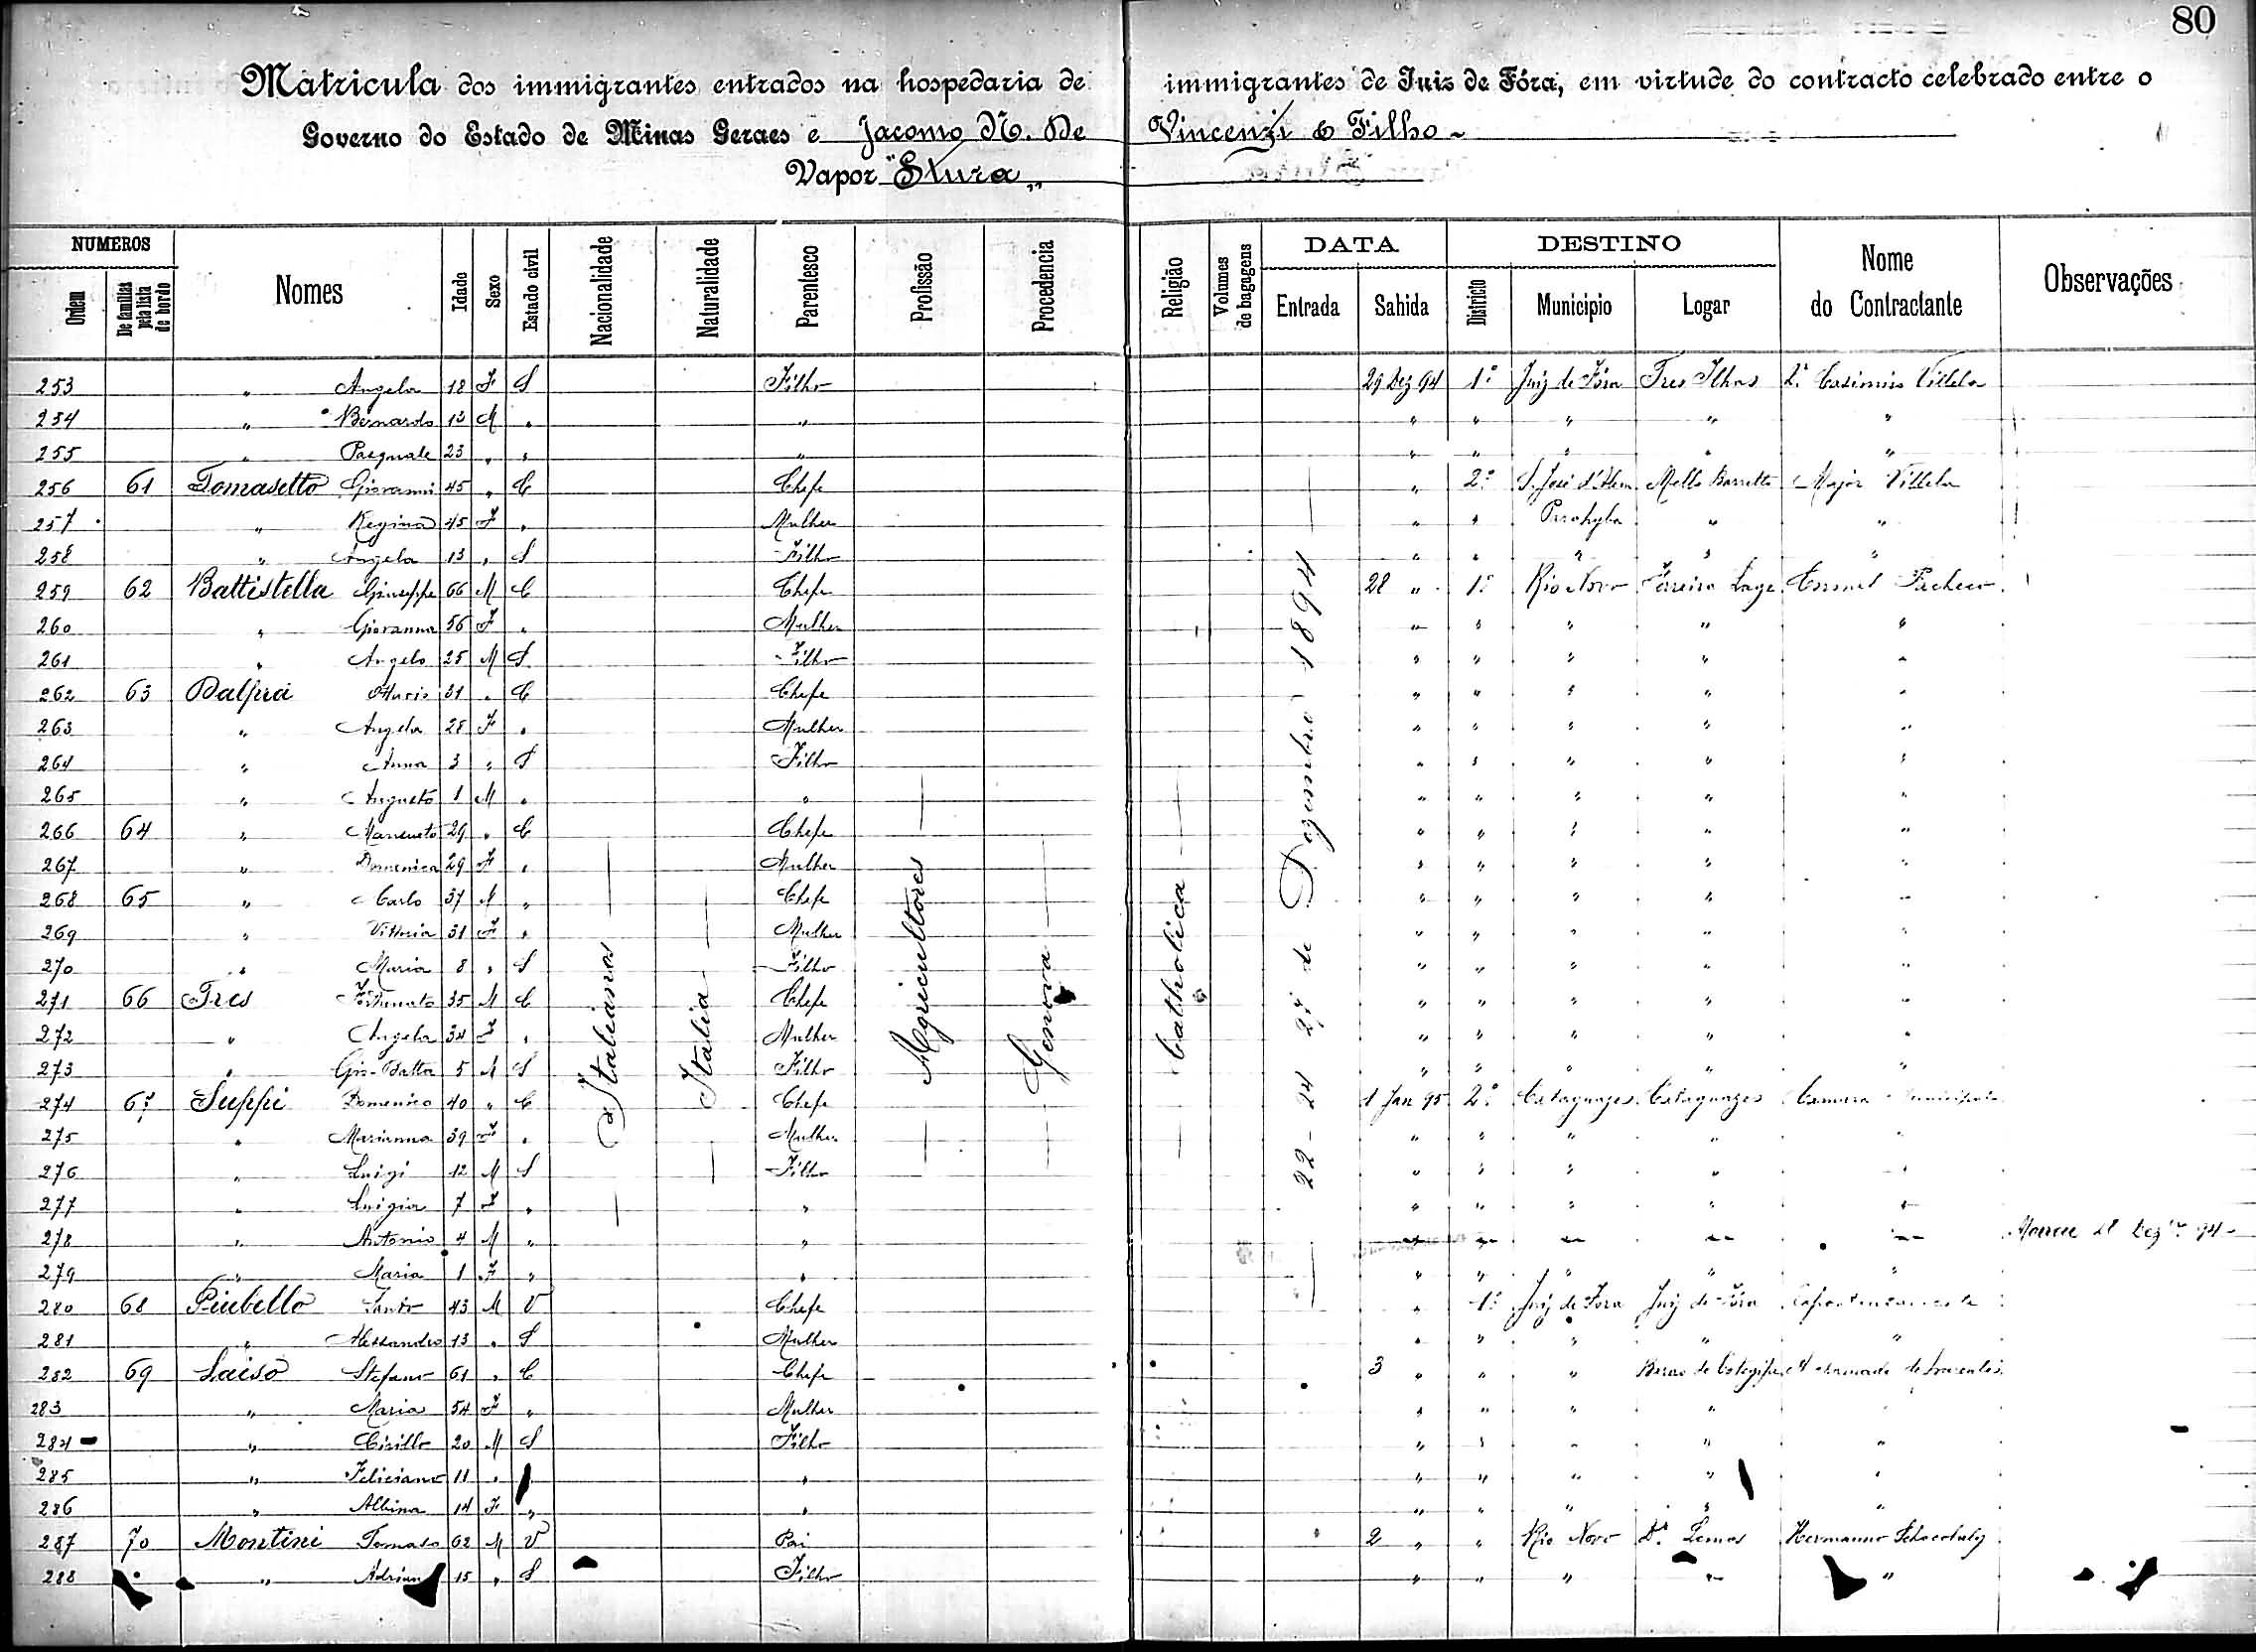 80
Matricula dos immigrantes entrados na hospedaria de immigrantes de Juiz de Fóra, em virtude do contracto celebrado entre o
Governo do Estado de Minas Geraes e Jacomo N. De Vincenzi & Filho
Vapor "Stura"
NUMEROS Nomes Idade Sexo Estado civil Nacionalidade Naturalidade Parentesco Profissão Procedencia Religião Volumes de bagagens DATA DESTINO Nome do Contractante Observações
Ordem De familias pela lista de bordo Entrada Sahida Districto Municipio Logar
Italianos Italia Agricultores Genova Catholica 22-24 27 de Dezembro 1894
253 " Angela 18 F S Filho 29 Dez 94 1º Juiz de Fóra Tres Ilhas Casimiro Villela
254 " Bernardo 13 M " " " " " " "
255 " Pasquale 23 " " " " " " " "
256 61 Tomasetto Giovanni 45 " C Chefe " 2º S. José d'Alem Mello Barretto Major Villela
257 " Regina 45 F " Mulher " " Parahyba " "
258 " Angela 13 " S Filho " " " " "
259 62 Battistella Giuseppe 66 M C Chefe 28 " 1º Rio Novo Ferreira Lage Coronel Pacheco
260 " Giovanna 56 F " Mulher " " " " "
261 " Angelo 25 M S Filho " " " " "
262 63 Dalprá 31 " C Chefe " " " " "
263 " Angela 28 F " Mulher " " " " "
264 " Anna 3 " S Filho " " " " "
265 " Augusto 1 M " " " " " " "
266 64 " 29 " C Chefe " " " " "
267 " Domenica 29 F " Mulher " " " " "
268 65 " Carlo 37 M " Chefe " " " " "
269 " Vittoria 31 F " Mulher " " " " "
270 " Maria 8 " S Filho " " " " "
271 66 Tres Fortunato 35 M C Chefe " " " " "
272 " Angela 34 F " Mulher " " " " "
273 " Gio-Batta 5 M S Filho " " " " "
274 67 Suppi Domenico 40 " C Chefe 1 Jan 95 2º Cataguazes Cataguazes Camara Municipal
275 " Marianna 39 F " Mulher " " " " "
276 " Luigi 12 M S Filho " " " " "
277 " Luigia 7 F " " " " " " "
278 " Antonio 4 M " " " " " " " Morreu 28 Dezbro 94
279 " Maria 1 F " " " " " " "
280 68 Piubello Santo 43 M V Chefe " 1º Juiz de Fora Juiz de Fóra
281 " Alessandro 13 " S Mulher " " " " "
282 69 Laiso Stefano 61 " C Chefe 3 " " " Barao de Cotegipe
283 " Maria 54 F " Mulher " " " " "
284 " Cirillo 20 M S Filho " " " " "
285 " Feliciano 11 " " " " " " "
286 " Albina 14 F " " " " " " "
287 70 Montini Tomaso 62 M V Pai 2 " " Rio Novo Dr. Lemos Hermanno
288 " 15 " S Filho " " " " "